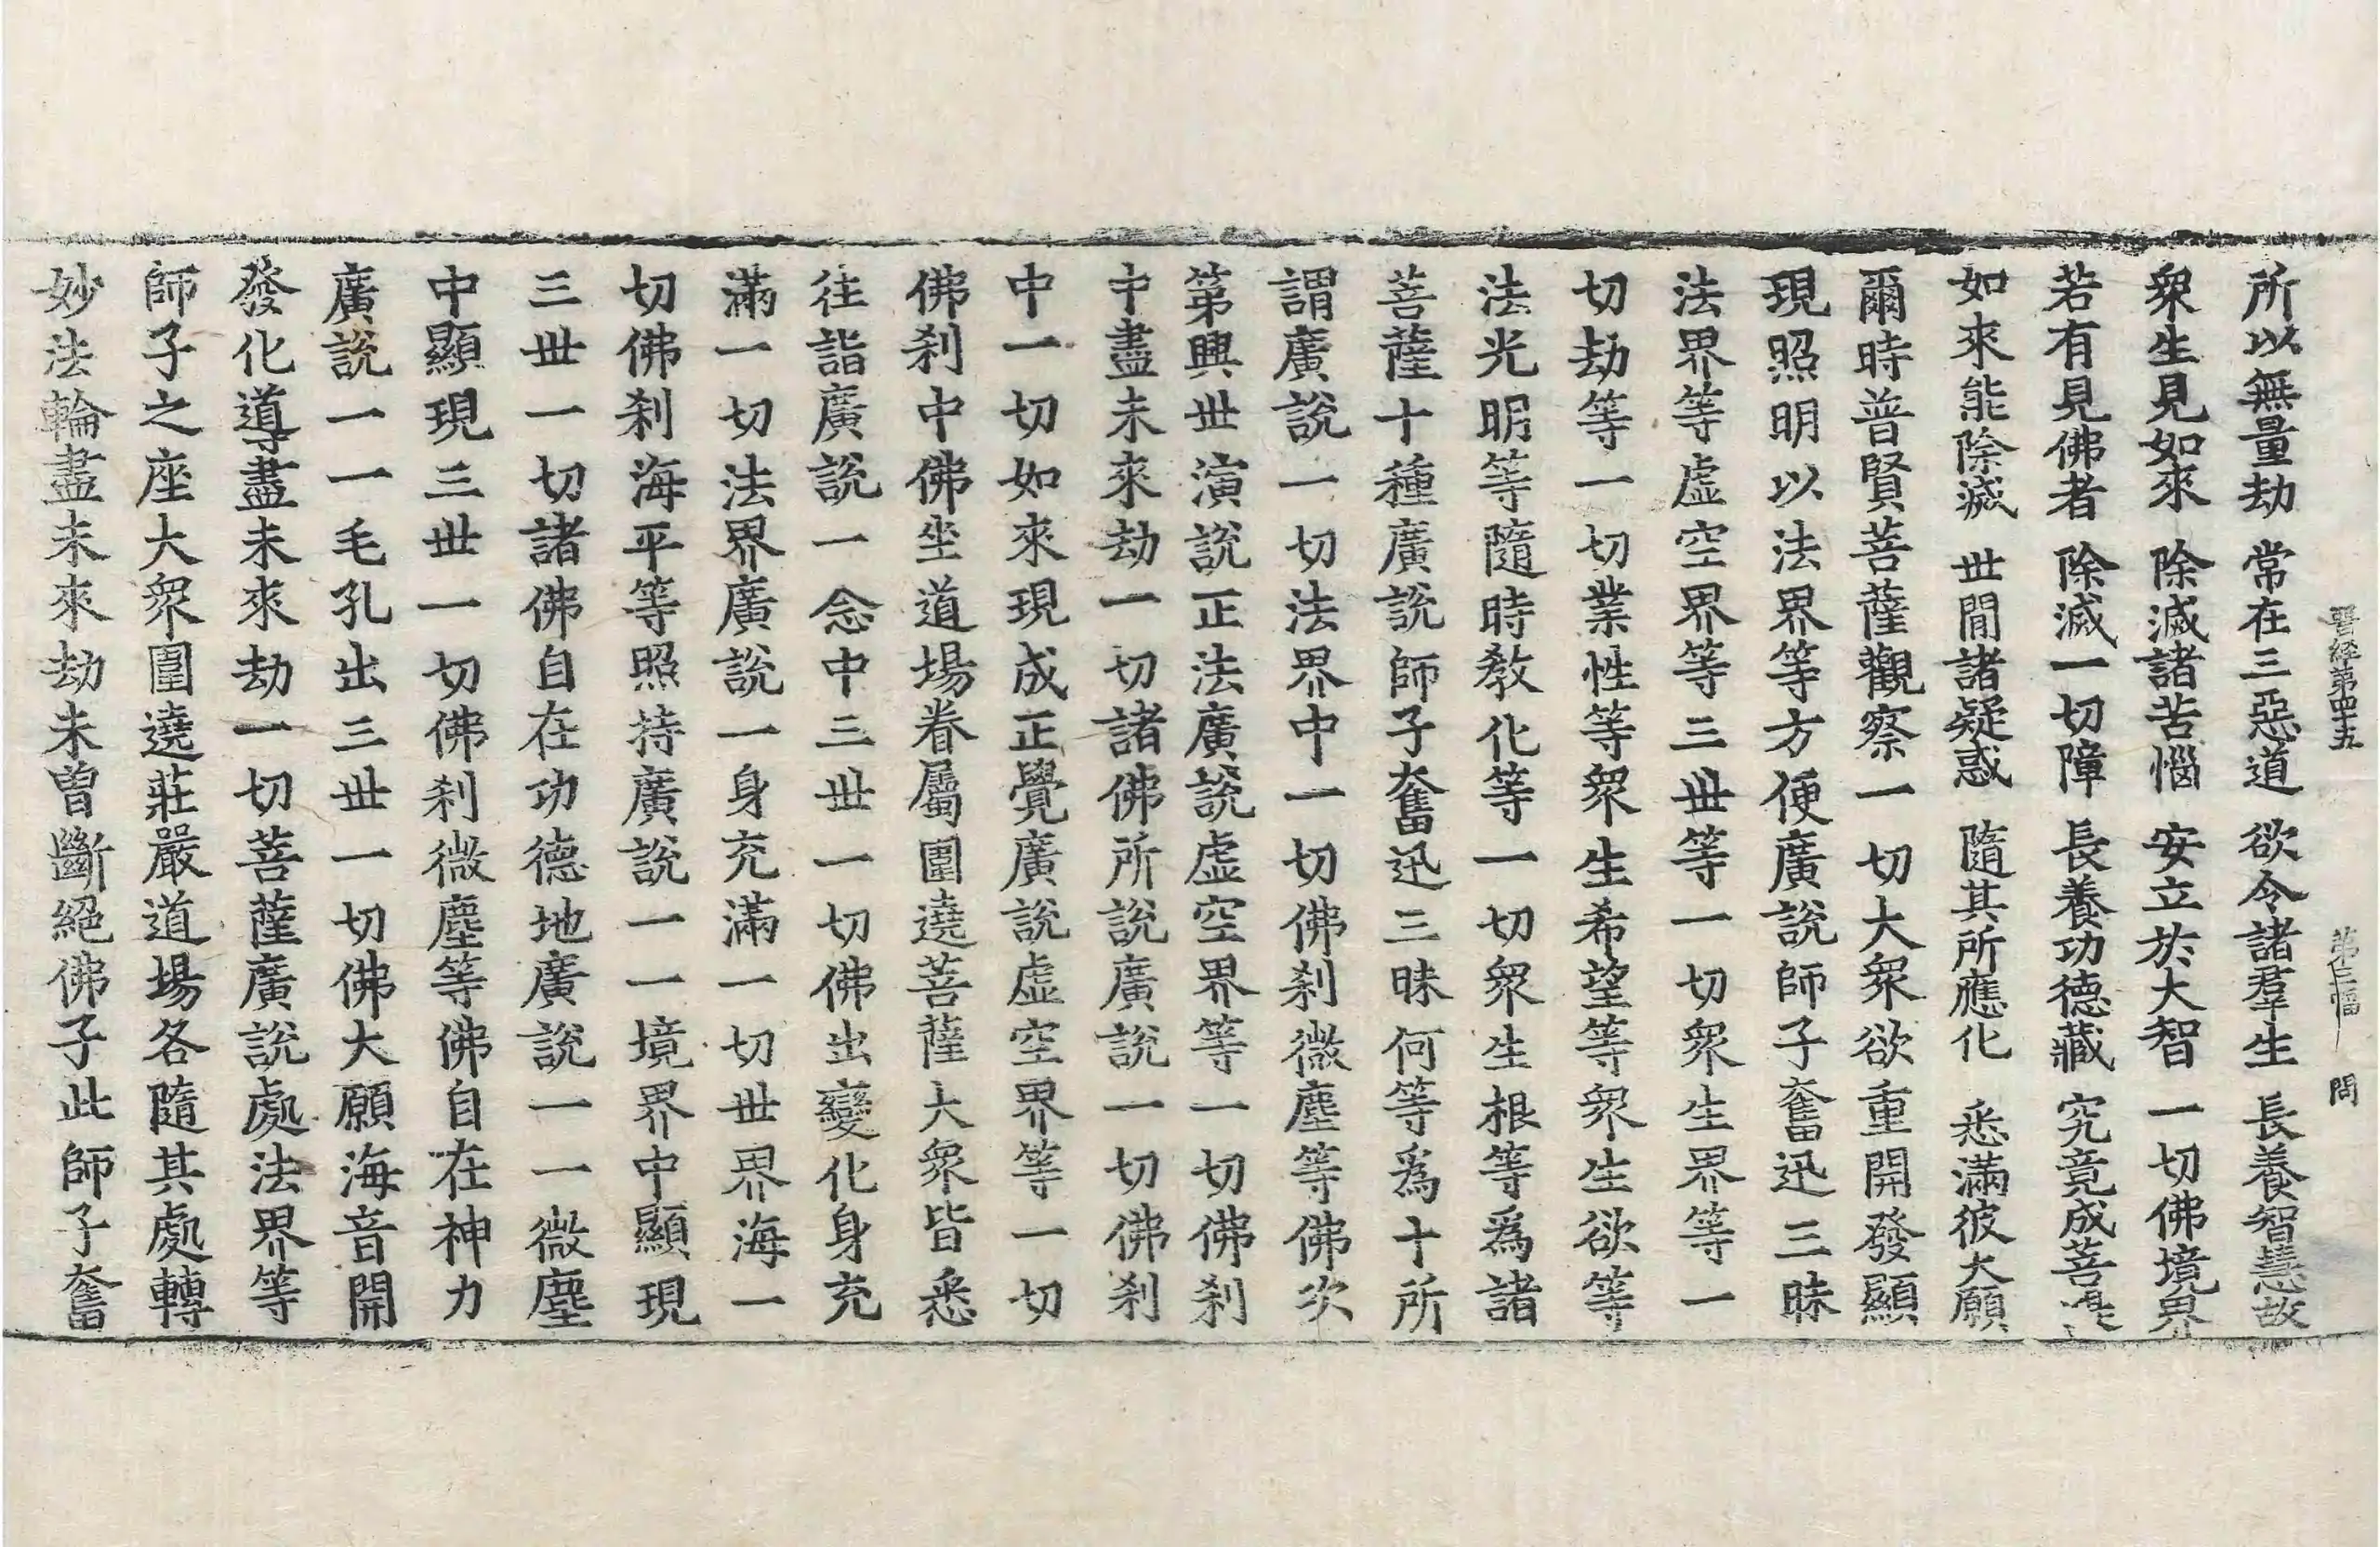 晋経第四十五 第三幅 問
所以無量劫 常在三惡道 欲令諸羣生 長養智慧故
衆生見如來 除滅諸苦惱 安立於大智 一切佛境界
若有見佛者 除滅一切障 長養功德藏 究竟成菩提
如來能除滅 世間諸疑惑 隨其所應化 悉滿彼大願
爾時普賢菩薩觀察一切大衆欲重開發顯
現照明以法界等方便廣說師子奮迅三昧
法界等虛空界等三世等一切衆生界等一
切劫等一切業性等衆生希望等衆生欲等
法光明等隨時教化等一切衆生根等爲諸
菩薩十種廣說師子奮迅三昧何等爲十所
謂廣說一切法界中一切佛刹微塵等佛次
第興世演說正法廣說虛空界等一切佛刹
中盡未來劫一切諸佛所說廣說一切佛刹
中一切如來現成正覺廣說虛空界等一切
佛刹中佛坐道場眷屬圍遶菩薩大衆皆悉
往詣廣說一念中三世一切佛出變化身充
滿一切法界廣說一身充滿一切世界海一
切佛刹海平等照持廣說一一境界中顯現
三世一切諸佛自在功德地廣說一一微塵
中顯現三世一切佛刹微塵等佛自在神力
廣說一一毛孔出三世一切佛大願海音開
發化導盡未來劫一切菩薩廣說處法界等
師子之座大衆圍遶莊嚴道場各隨其處轉
妙法輪盡未來劫未曽斷絕佛子此師子奮